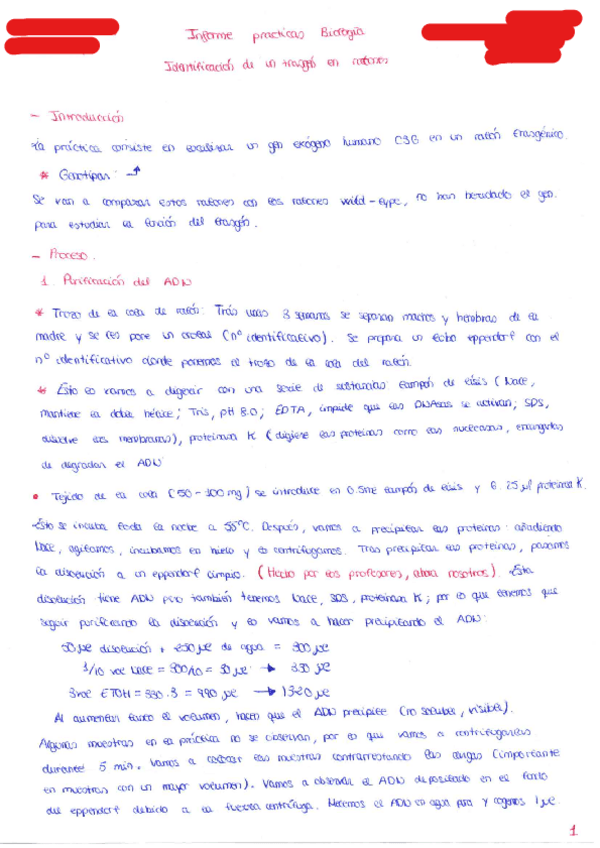 Informe practicas Biología
Identificación de un trasgén en ratones
- Introducción
La práctica consiste en localizar un gen exógeno humano C3G en un ratón transgénico.
* Genotipar:
Se van a comparar estos ratones con los ratones wild-type, no han heredado el gen.
para estudiar la función del trasgén.
- Proceso.
1. Purificación del ADN
* Trozo de la cola de ratón: Trás unas 3 semanas se separan machos y hembras de la
madre y se les pone un crotal (nº identificativo). Se prepara un tubo eppendorf con el
nº identificativo donde ponemos el trozo de la cola del ratón.
* Esto lo vamos a digerir con una serie de sustancias tampón de lisis (NaCl,
mantiene la doble hélice; Tris, pH 8.0; EDTA, impide que las DNAsas se activan; SDS,
disuelve las membranas), proteinasa K (digiere las proteínas como las nucleasas, encargadas
de degradar el ADN
• Tejido de la cola (50-100 mg) se introduce en 0.5ml tampón de lisis y 6.25 µl proteinasa K.
-Esto se incuba toda la noche a 55ºC. Después, vamos a precipitar las proteínas: añadiendo
NaCl, agitamos, incubamos en hielo y lo centrifugamos. Tras precipitar las proteínas, pasamos
la disolución a un eppendorf limpio. (Hecho por los profesores, ahora nosotros). Esta
disolución tiene ADN pero también tenemos NaCl, SDS, proteinasa K; por lo que tenemos que
seguir purificando la disolución y lo vamos a hacer precipitando el ADN:
50 µl disolución + 250 µl de agua = 300 µl
1/10 vol NaCl = 300/10 = 30 µl → 330 µl
3 vol ETOH = 330·3 = 990 µl → 1320 µl
Al aumentar tanto el volumen, hacen que el ADN precipite (no soluble, visible).
Algunas muestras en la práctica no se observan, por lo que vamos a centrifugarlas
durante 5 min. Vamos a colocar las muestras contrarrestando las cargas (importante
en muestras con un mayor volumen). Vamos a observar el ADN depositado en el fondo
del eppendorf debido a la fuerza centrífuga. Metemos el ADN en agua para y cogemos 1 µl
1